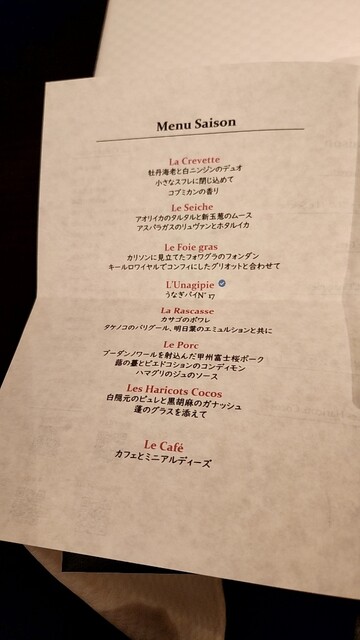 Menu Saison
La Crevette
牡丹海老と白ニンジンのデュオ
小さなスフレに閉じ込めて
コブミカンの香り
Le Seiche
アオリイカのタルタルと新玉葱のムース
アスパラガスのリュヴァンとホタルイカ
Le Foie gras
カリソンに見立てたフォワグラのフォンダン
キールロワイヤルでコンフィにしたグリオットと合わせて
L'Unagipie
うなぎパイN° 17
La Rascasse
カサゴのポワレ
タケノコのバリグール、明日葉のエミュルションと共に
Le Porc
ブーダンノワールを射込んだ甲州富士桜ポーク
蕗の薹とピエドコションのコンディモン
ハマグリのジュのソース
Les Haricots Cocos
白隠元のピュレと黒胡麻のガナッシュ
蓬のグラスを添えて
Le Café
カフェとミニアルディーズ